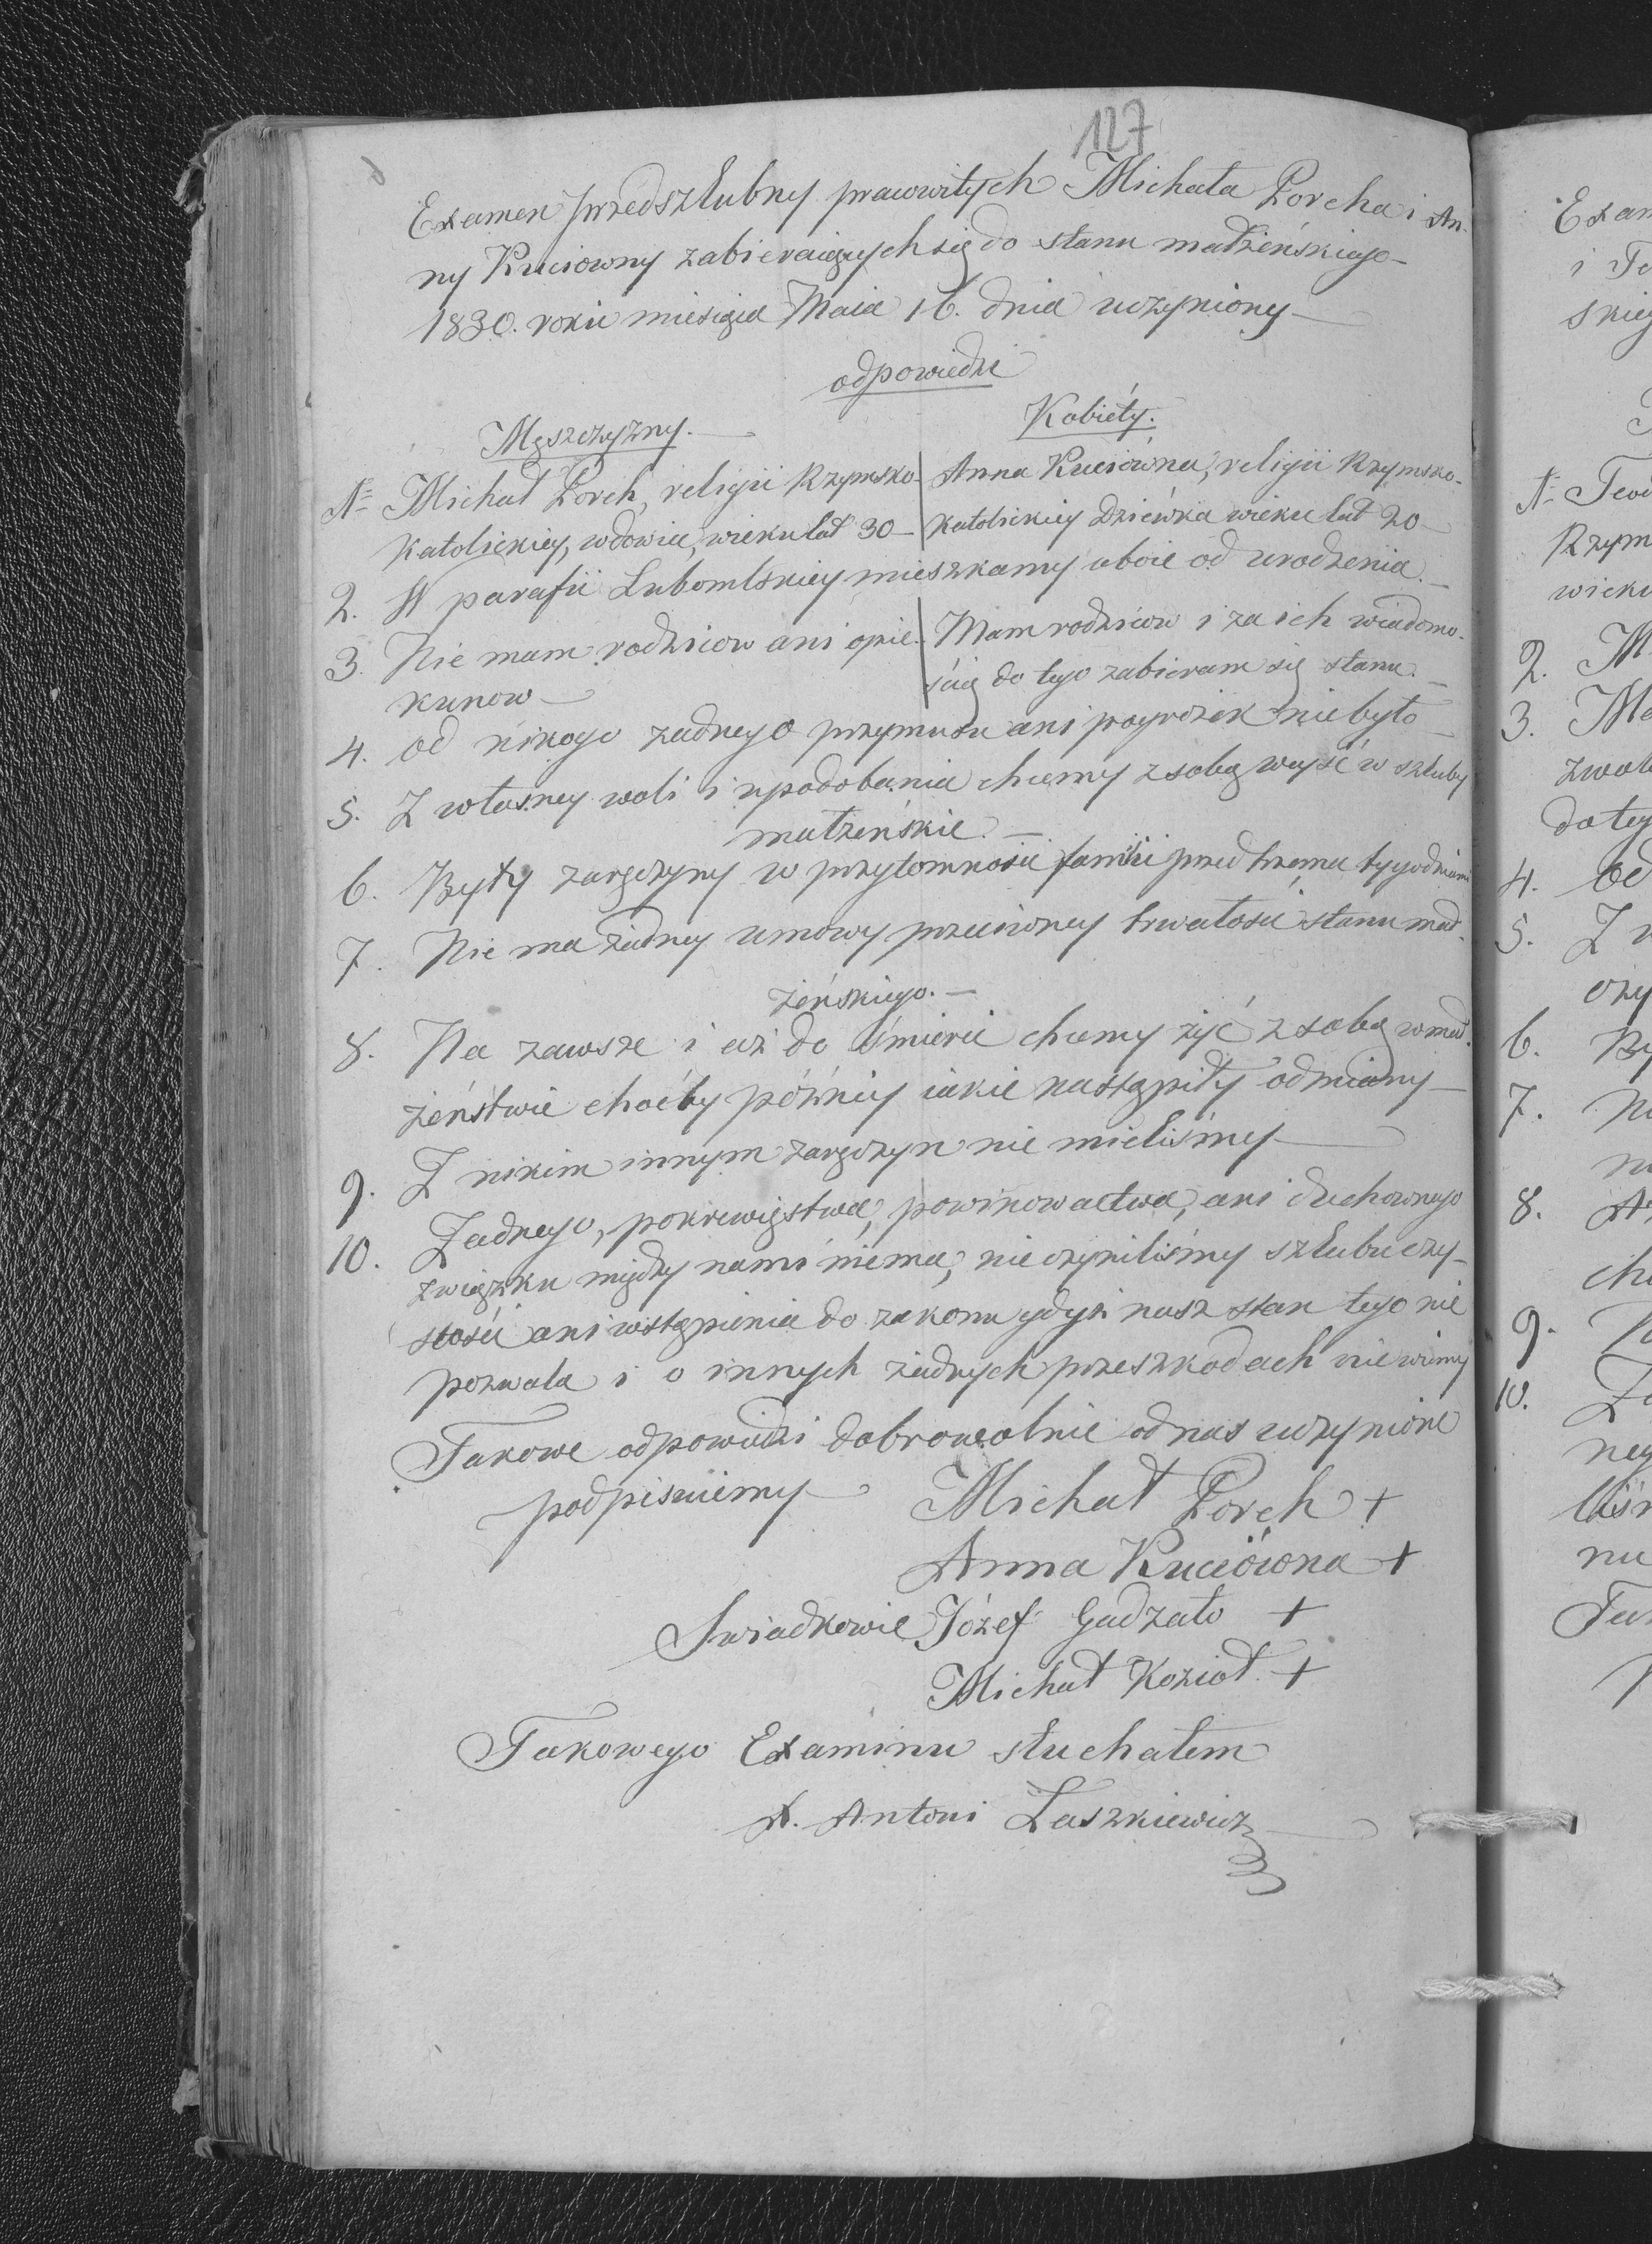 127
Examen przedszlubny prawowitych Michała Porcha i An-
ny Kuciowny zabieraiących się do stanu małżeńskiego
1830. roku miesiąca Maia 16. dnia uczyniony
odpowiedzi
Męszczyzny. Kobiéty.
N= Michał Porch, religii Rzymsko- Anna Kuciówna, religii Rzymsko-
Katolickiey, wdowiec, wieku lat 30 Katolickiey Dziéwka wieku lat 20
2. W parafii Lubomlskiey mieszkamy oboie od urodzenia.
3. Nie mam rodziców ani opie- Mam rodziców i za ich wiadomo-
kunow ścią do tego zabieram się stanu.
4. od nikogo żadnego przymusu ani pogrożek nie było
5. Z własney woli i upodobania chcemy z sobą wejść w szluby
małżeńskie.
6. Były zaręczyny w przytomności familii przed trzema tygodniami
7. Nie ma żadney umowy przeciwney trwałości stanu mał-
żeńskiego.
8. Na zawsze i aż do śmierci chcemy żyć z sobą w mał-
żeństwie choćby póżniey iakie nastąpiły odmiany
9. Z nikim innym zaręczyn nie mieliśmy
10. Żadnego, pokrewięstwa, powinowactwa, ani duchownego
związku między nami niéma, nie czyniliśmy szlubu czy-
stości ani wstąpienia do zakonu gdyż nasz stan tego nie
pozwala i o innych żadnych przeszkodach nie wiemy
Takowe odpowiedzi dobrowolnie od nas uczynione
podpisuiemy Michał Porch +
Anna Kuciówna +
Swiadkowie Józef Gadzało +
Michał Kozioł +
Takowego Examinu słuchałem
X. Antoni Laszkiewicz
Exam
skieg
N=
Rzym
wieku
2. M
3. Ma
zwol
do teg
4. od
5. Z
czy
6. By
7. Ni
8. N
chc
9.
10. Ża
neg
liśm
nu
Tak